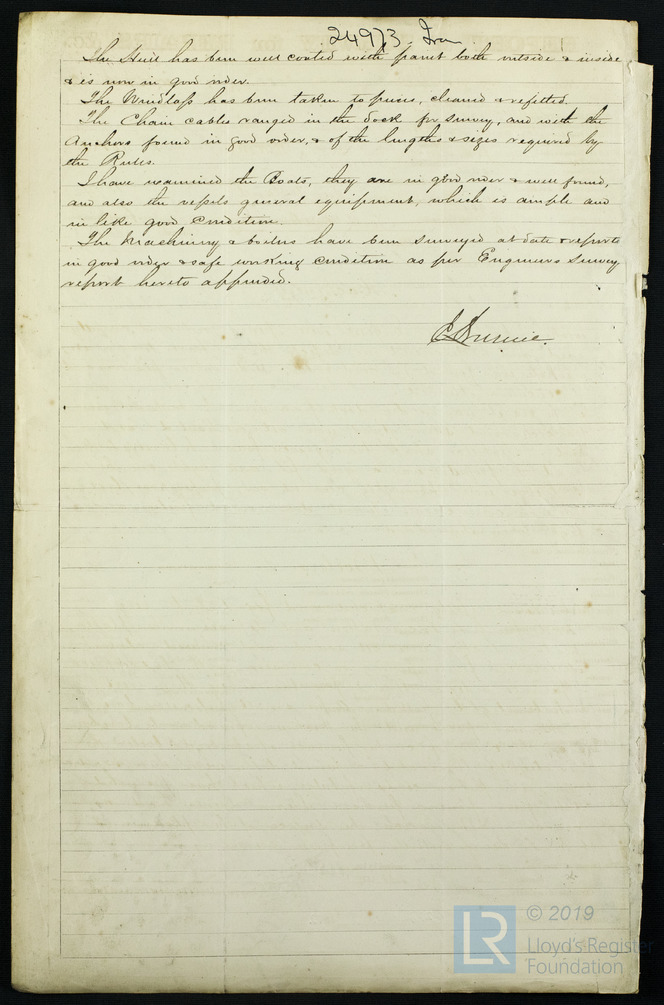 24973 Iron
The Steel has been well coated with paint both outside & inside
& is now in good order.
The Windlass has been taken to pieces, cleaned & refitted.
The Chain cables ranged in the dock for survey, and with the
Anchors found in good order, & of the lengths & sizes required by
the Rules.
I have examined the Boats, they are in good order & well found,
and also the vessels general equipment, which is ample and
in like good condition.
The Machinery & boilers have been surveyed at date & reported
in good order & safe working condition as per Engineers Survey
report hereto appended.
© 2019
LR
Lloyd's Register
Foundation